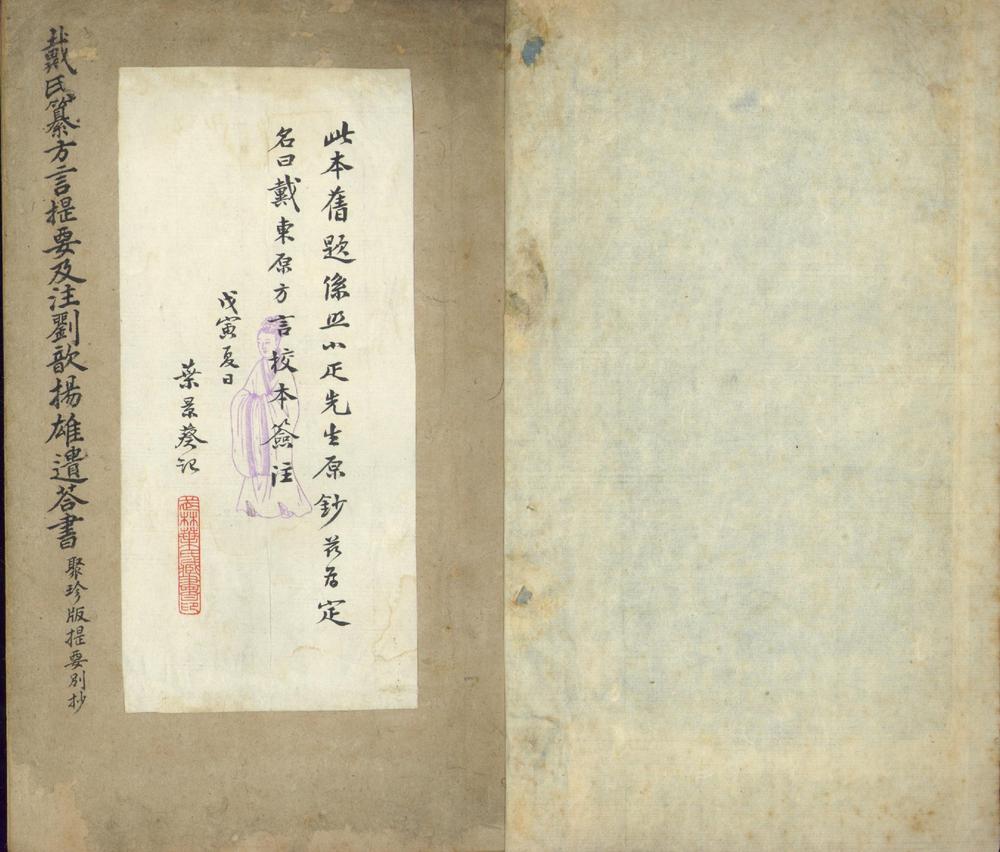 此本舊題係照小疋先生原鈔茲為定
名曰戴東原方言校本簽注
戊寅夏日
葉景葵記
武林葉氏藏書印
戴氏纂方言提要及注劉歆揚雄遺荅書 聚珍版提要別抄